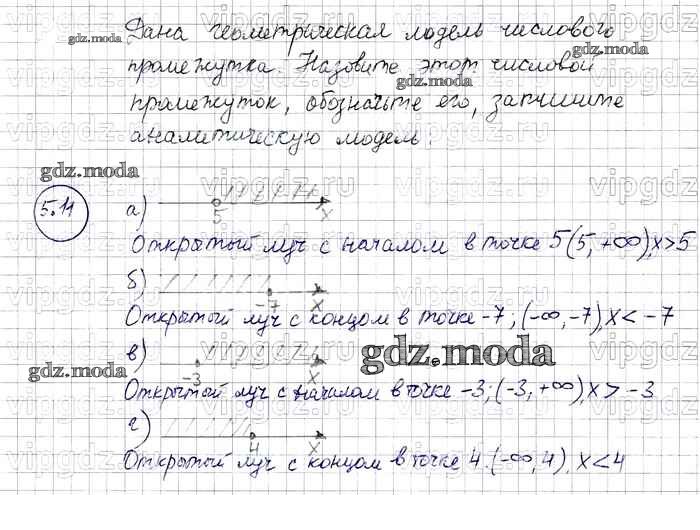 Дана геометрическая модель числового
промежутка. Назовите этот числовой
промежуток, обозначьте его, запишите
аналитическую модель.
gdz.moda
gdz.moda
gdz.moda
gdz.moda
5.11
а)
5 x
Открытый луч с началом в точке 5 (5, +∞), x>5
б)
-7 x
Открытый луч с концом в точке -7; (-∞, -7), x < -7
gdz.moda
в)
-3 x
gdz.moda
Открытый луч с началом в точке -3; (-3, +∞), x > -3
г)
4 x
Открытый луч с концом в точке 4. (-∞, 4), x<4
vipgdz.ru